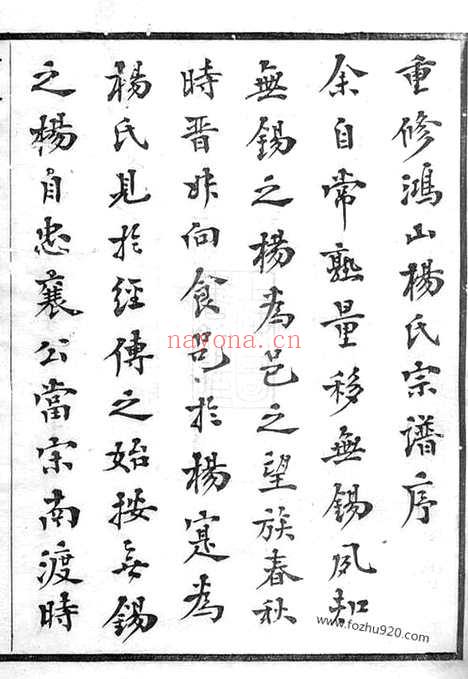 重修鴻山楊氏宗譜序
余自常熟量移無錫夙知
無錫之楊為邑之望族春秋
時晋羊向食邑於楊寔為
楊氏見於經傳之始按無錫
之楊自忠襄公當宋南渡時
nayona.cn
www.fozhu920.com